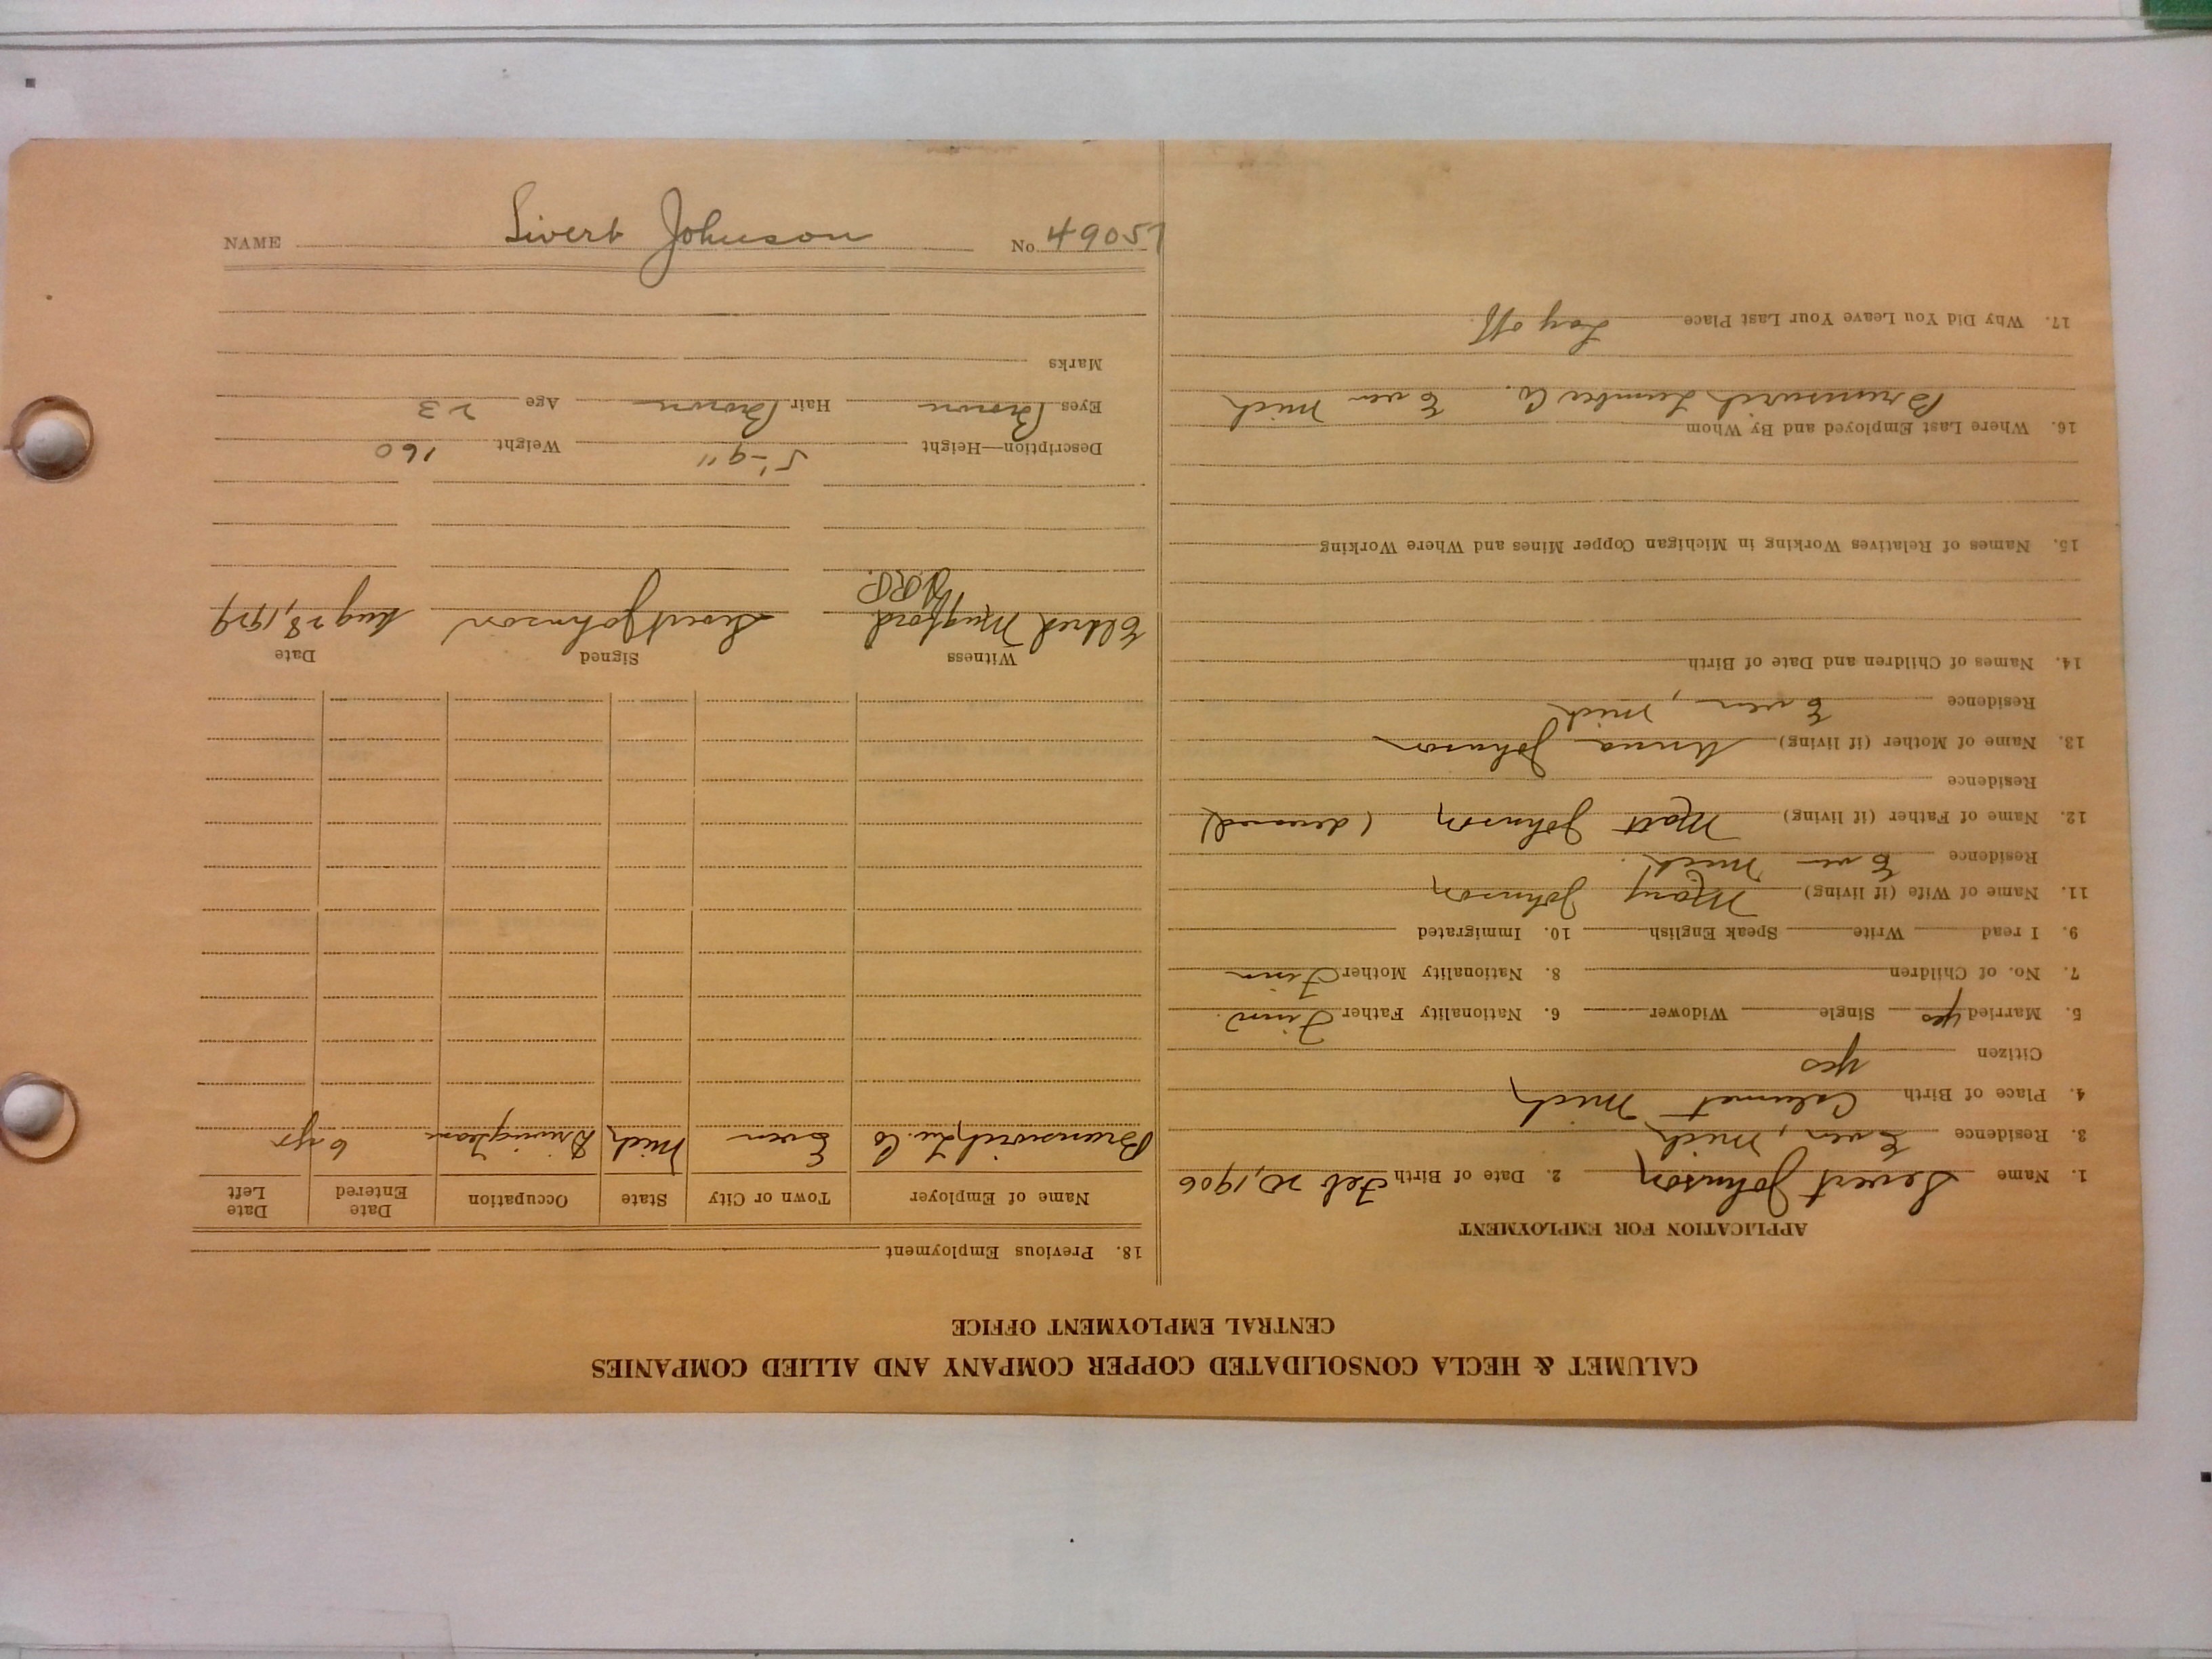 CALUMET & HECLA CONSOLIDATED COPPER COMPANY AND ALLIED COMPANIES
CENTRAL EMPLOYMENT OFFICE
APPLICATION FOR EMPLOYMENT
1. Name Sivert Johnson 2. Date of Birth Feb 20, 1906
3. Residence Ewen, Mich
4. Place of Birth Calumet Mich
Citizen yes
5. Married yes Single Widower 6. Nationality Father Finn
7. No. of Children 8. Nationality Mother Finn
9. I read Write Speak English 10. Immigrated
11. Name of Wife (if living) Mary Johnson
Residence Ewen Mich.
12. Name of Father (if living) Matt Johnson (deceased)
Residence
13. Name of Mother (if living) Anna Johnson
Residence Ewen, Mich
14. Names of Children and Date of Birth
15. Names of Relatives Working in Michigan Copper Mines and Where Working
16. Where Last Employed and By Whom
Brunswick Lumber Co. Ewen Mich
17. Why Did You Leave Your Last Place Lay off
18. Previous Employment
Name of Employer Town or City State Occupation Date Entered Date Left
Brunswick Lu. Co Ewen Mich Driving Team 6 yrs
Witness Signed Date
Eldred Mugford Sivert Johnson Aug 28, 1929
Description—Height 5'-9" Weight 160
Eyes Brown Hair Brown Age 23
Marks
NAME Sivert Johnson No 49057